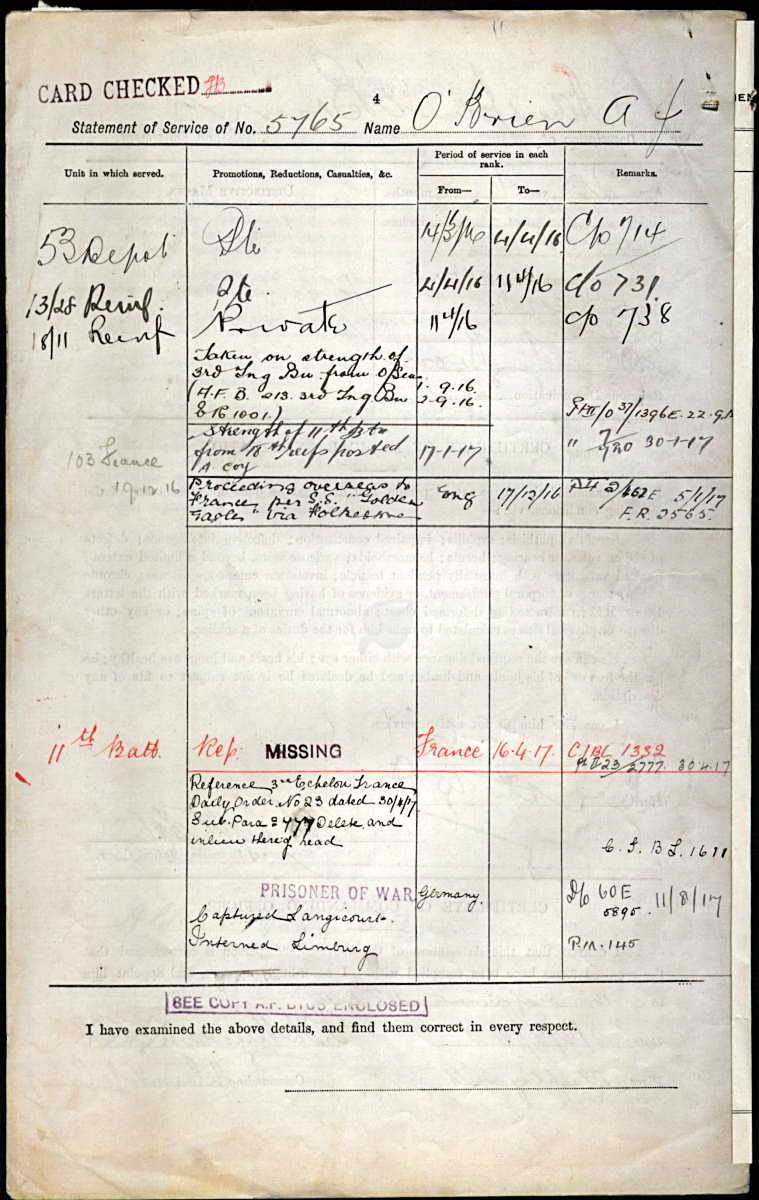 CARD CHECKED
4
Statement of Service of No. 5765 Name O'Brien A J
Unit in which served.
Promotions, Reductions, Casualties, &c.
Period of service in each rank.
From—
To—
Remarks.
53 Depot Pte 14/3/16 4/4/16 C/o 714
13/28 Reinf. Pte. 4/4/16 11/4/16 C/o 731
18/11 Reinf Private 11/4/16 C/o 738
Taken on strength of
3rd Tng Bn from O/Sea 1.9.16
(A.F.B. 213. 3rd Tng Bn 2.9.16
Strength of 11th Btn
from 18th posted 17-1-17 " 30-1-17
A Coy
103 France
19.12.16
Proceeding overseas to Eng 17/12/16 5/1/17
France per S.S. "Golden
Eagle" via Folkestone F.R. 2565.
11th Batt. Rep: MISSING France 16.4.17. C/BL 1332
23/2777. 30.4.17
Reference 3rd Echelon France
Daily Order No 23 dated 30/4/17
Sub. Para 2777 Delete and
inlieu thereof read
1611
PRISONER OF WAR Germany D/o 60E 11/8/17
Captured Langicourt. 5895
Interned Limburg P.M. 145
SEE COPY A.F. B103 ENCLOSED
I have examined the above details, and find them correct in every respect.